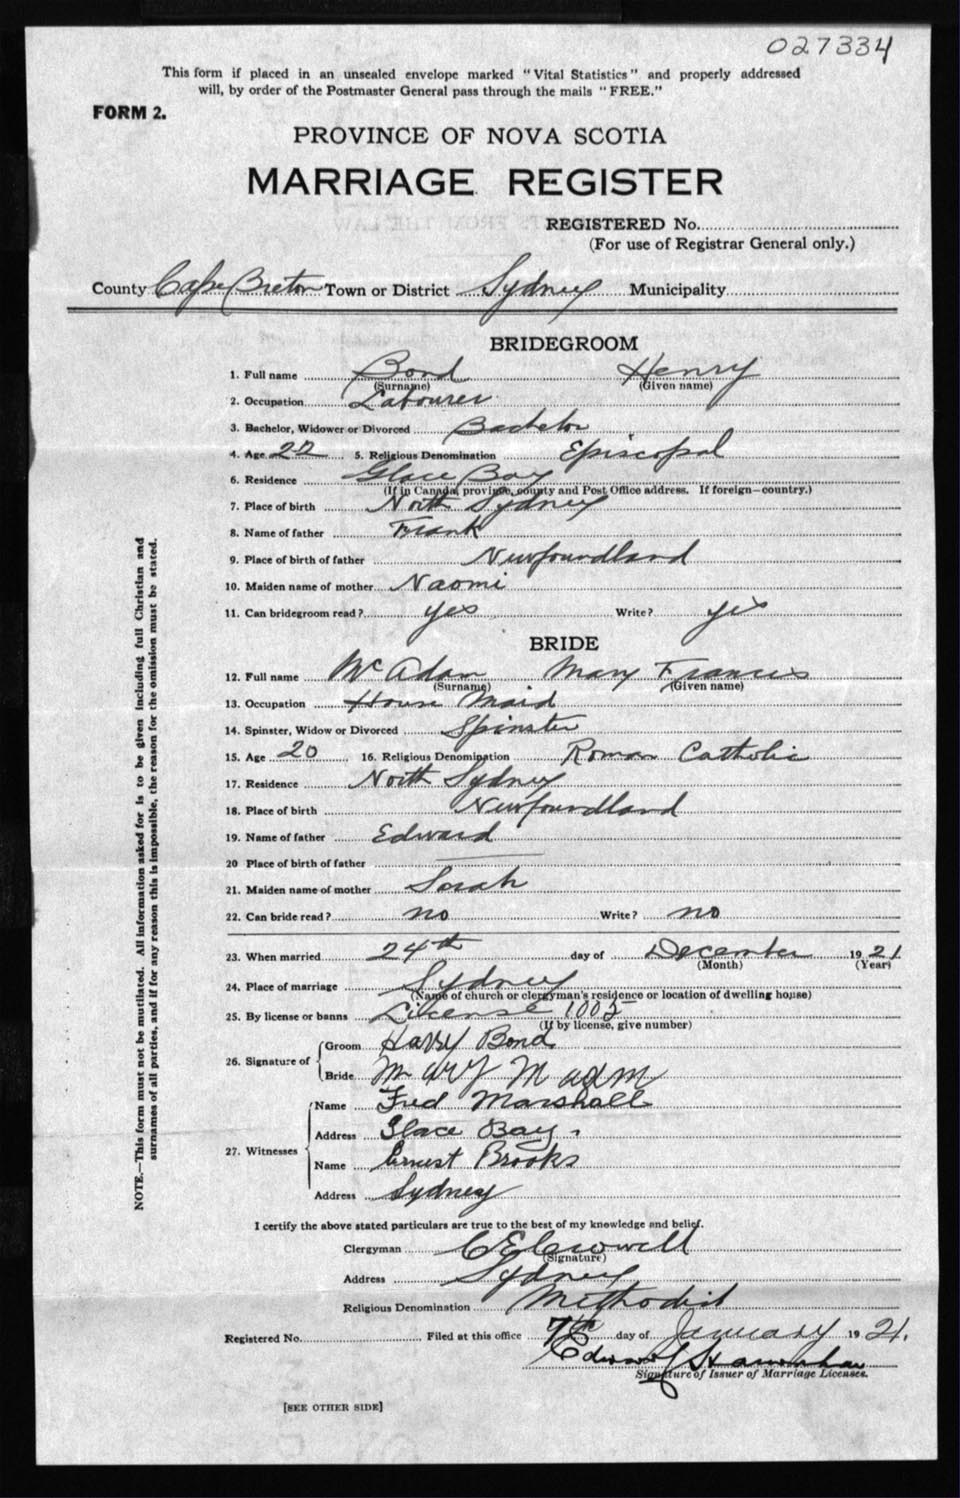 027334
This form if placed in an unsealed envelope marked "Vital Statistics" and properly addressed
will, by order of the Postmaster General pass through the mails "FREE."
FORM 2.
PROVINCE OF NOVA SCOTIA
MARRIAGE REGISTER
REGISTERED No.
(For use of Registrar General only.)
County Cape Breton Town or District Sydney Municipality
BRIDEGROOM
1. Full name Bond Henry
(Surname) (Given name)
2. Occupation Labourer
3. Bachelor, Widower or Divorced Bachelor
4. Age 22 5. Religious Denomination Episcopal
6. Residence Glace Bay
(If in Canada, province, county and Post Office address. If foreign—country.)
7. Place of birth North Sydney
8. Name of father Frank
9. Place of birth of father Newfoundland
10. Maiden name of mother Naomi
11. Can bridegroom read? yes Write? yes
BRIDE
12. Full name McAdam Mary Frances
(Surname) (Given name)
13. Occupation House Maid
14. Spinster, Widow or Divorced Spinster
15. Age 20 16. Religious Denomination Roman Catholic
17. Residence North Sydney
18. Place of birth Newfoundland
19. Name of father Edward
20 Place of birth of father —
21. Maiden name of mother Sarah
22. Can bride read? no Write? no
23. When married 24th day of December 1921
(Month) (Year)
24. Place of marriage Sydney
(Name of church or clergyman's residence or location of dwelling house)
25. By license or banns License 1005
(If by license, give number)
26. Signature of
Groom Harry Bond
Bride Mary Madm
27. Witnesses
Name Fred Marshall
Address Glace Bay.
Name Ernest Brooks
Address Sydney
I certify the above stated particulars are true to the best of my knowledge and belief.
Clergyman C E Crowell
(Signature)
Address Sydney
Religious Denomination Methodist
Registered No. Filed at this office 7th day of January 1921.
Signature of Issuer of Marriage Licenses.
[SEE OTHER SIDE]
NOTE.—This form must not be mutilated. All information asked for is to be given including full Christian and
surnames of all parties, and if for any reason this is impossible, the reason for the omission must be stated.